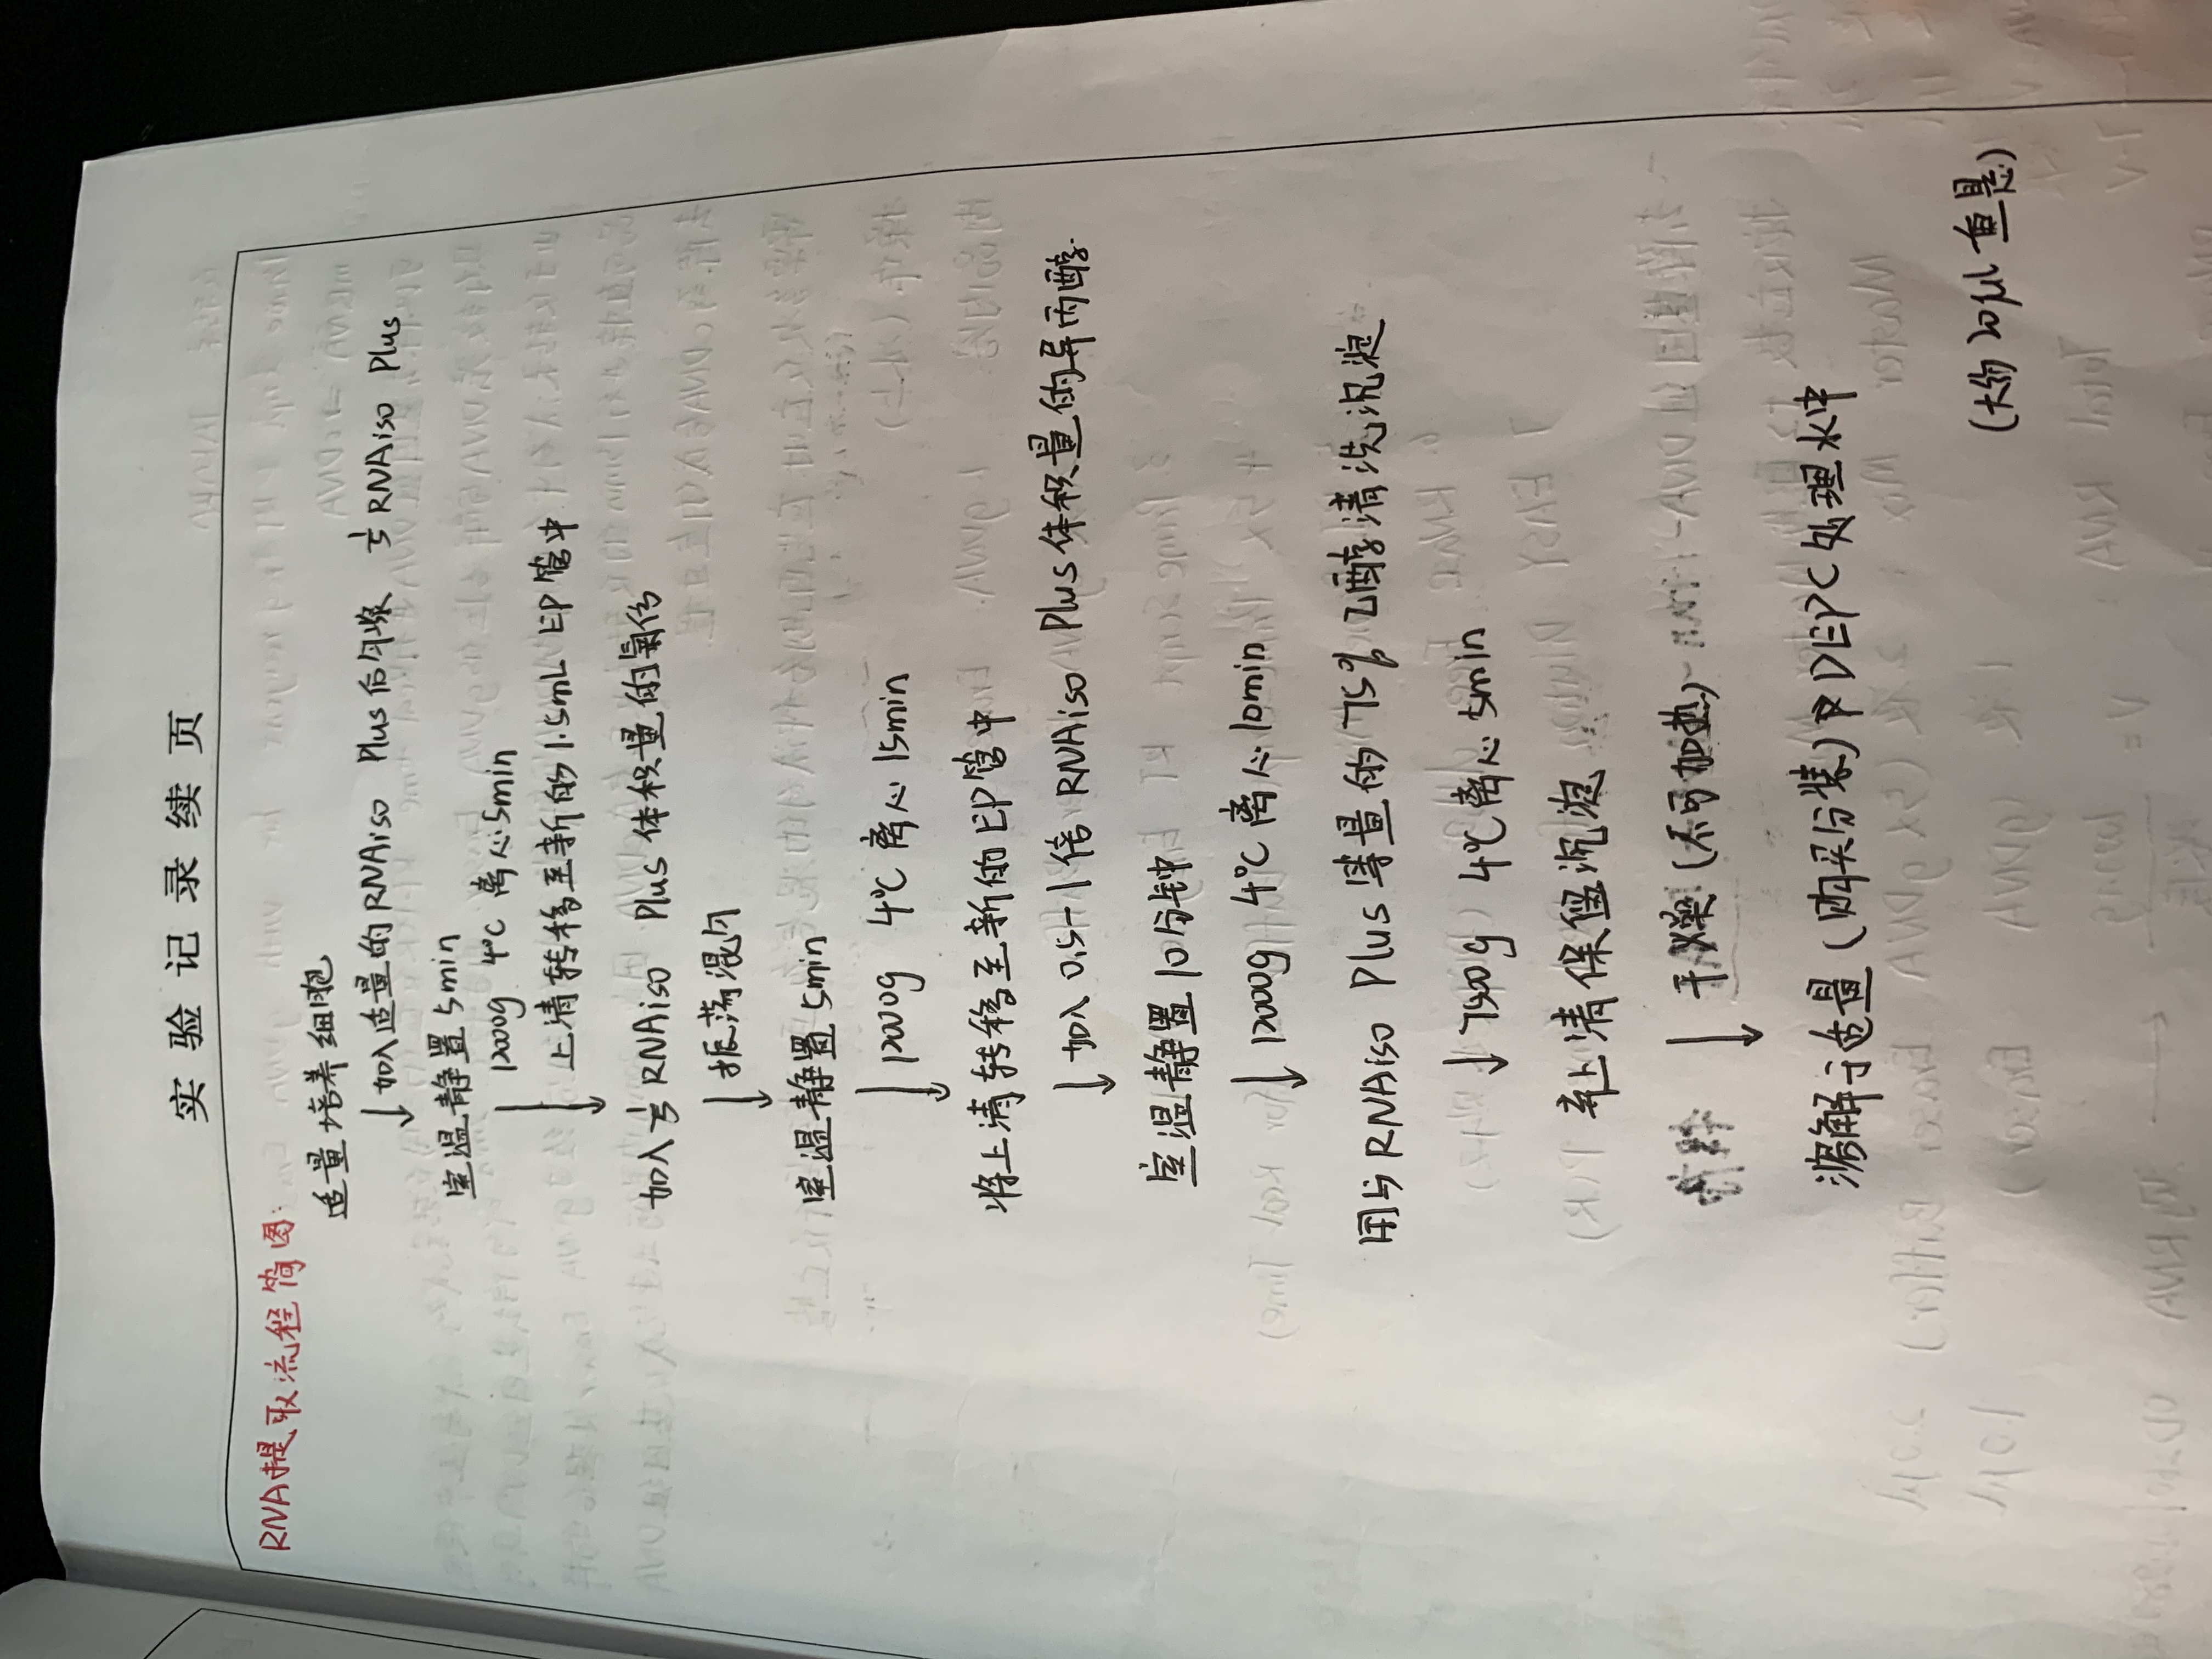 实验记录续页
RNA提取流程简图:
适量培养细胞
↓ 加入适量的RNAiso Plus后匀浆 1/5 RNAiso Plus
室温静置5min
12000g 4℃ 离心5min
↓ 上清转移至新的1.5mL EP管中
加入1/5 RNAiso Plus体积量的氯仿
↓ 振荡混匀
室温静置5min
↓ 12000g 4℃ 离心15min
将上清转移至新的EP管中
↓ 加入0.5-1倍 RNAiso Plus体积量的异丙醇.
室温静置10分钟
↓ 12000g 4℃ 离心10min
用与RNAiso Plus等量的75%乙醇清洗沉淀
↓ 7500g 4℃离心5min
弃上清保留沉淀
↓ 干燥(不可加热)
溶解于适量(购买分装)DEPC处理水中
(大约20μl重悬)